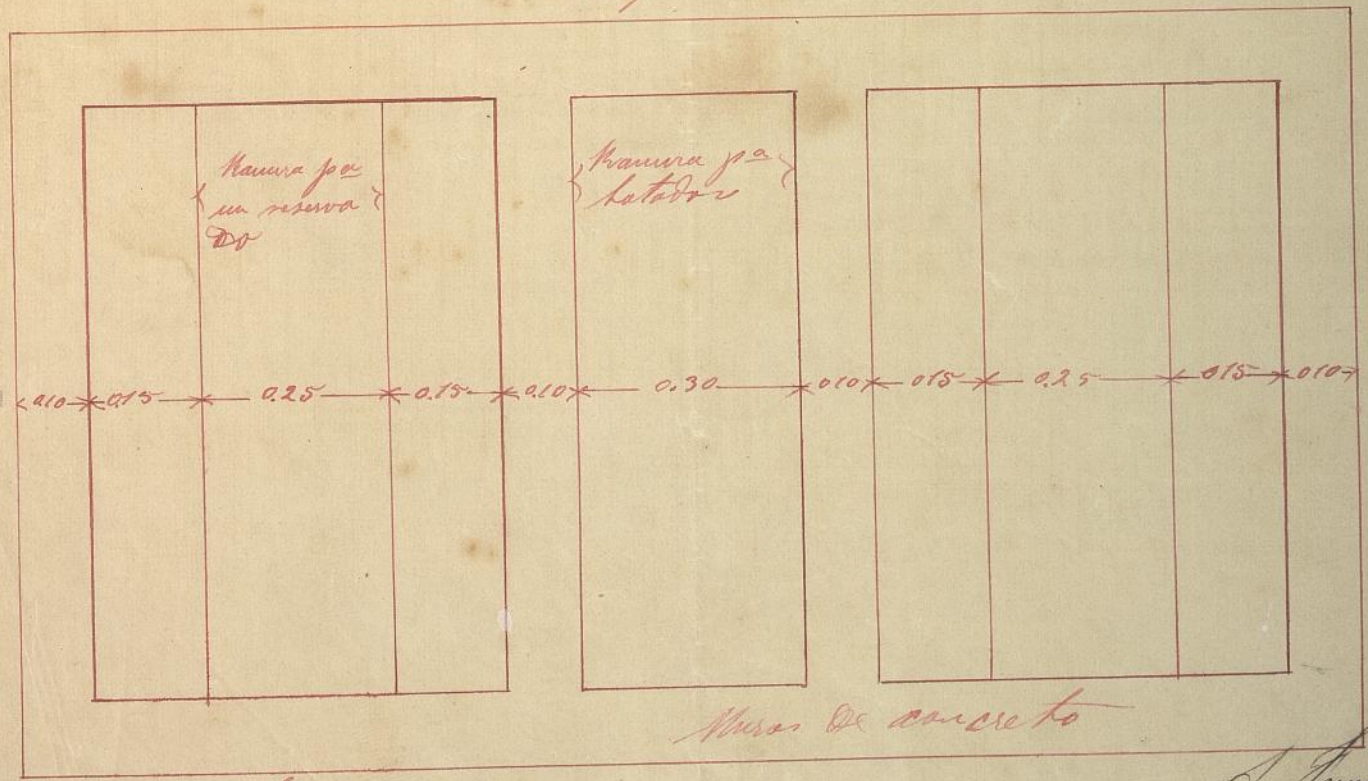 Ranura pª
un reserva
do
Ranura pª
botador
0.10 0.15 0.25 0.15 0.10 0.30 0.10 0.15 0.25 0.15 0.10
Muros de concreto